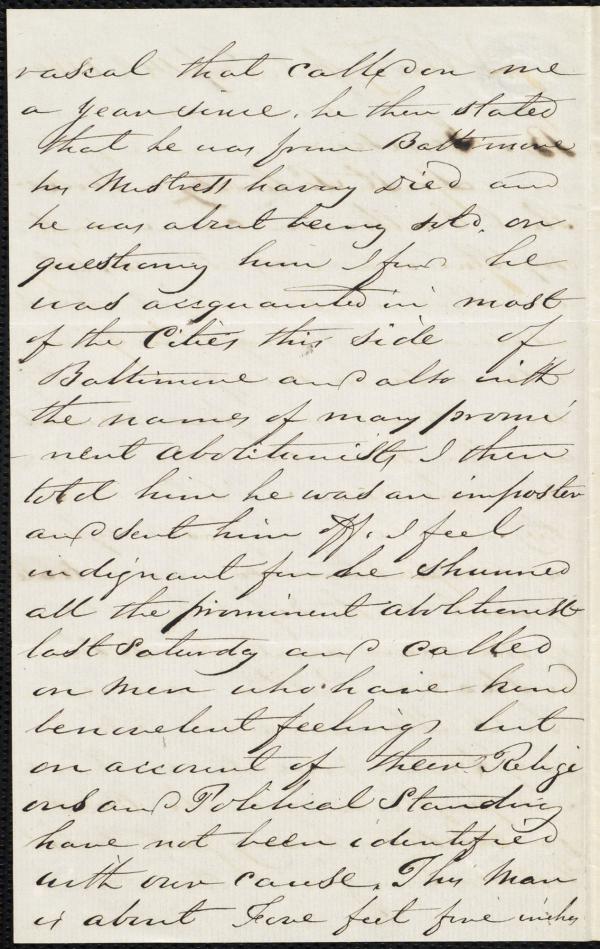 rascal that called on me
a year since, he then stated
that he was from Baltimore
his Mistress having died and
he was about being sold. on
questioning him I find he
was accquainted in most
of the Cities this side of
Baltimore and also with
the names of many promi
- nent abolitionists I then
told him he was an imposter
and sent him off. I feel
indignant for he shunned
all the prominent abolitionists
last Saturdy and called
on men who have kind
benevelent feelings but
on account of their Religi
ous and Political Standing
have not been identified
with our cause. This Man
is about Five feet five inches